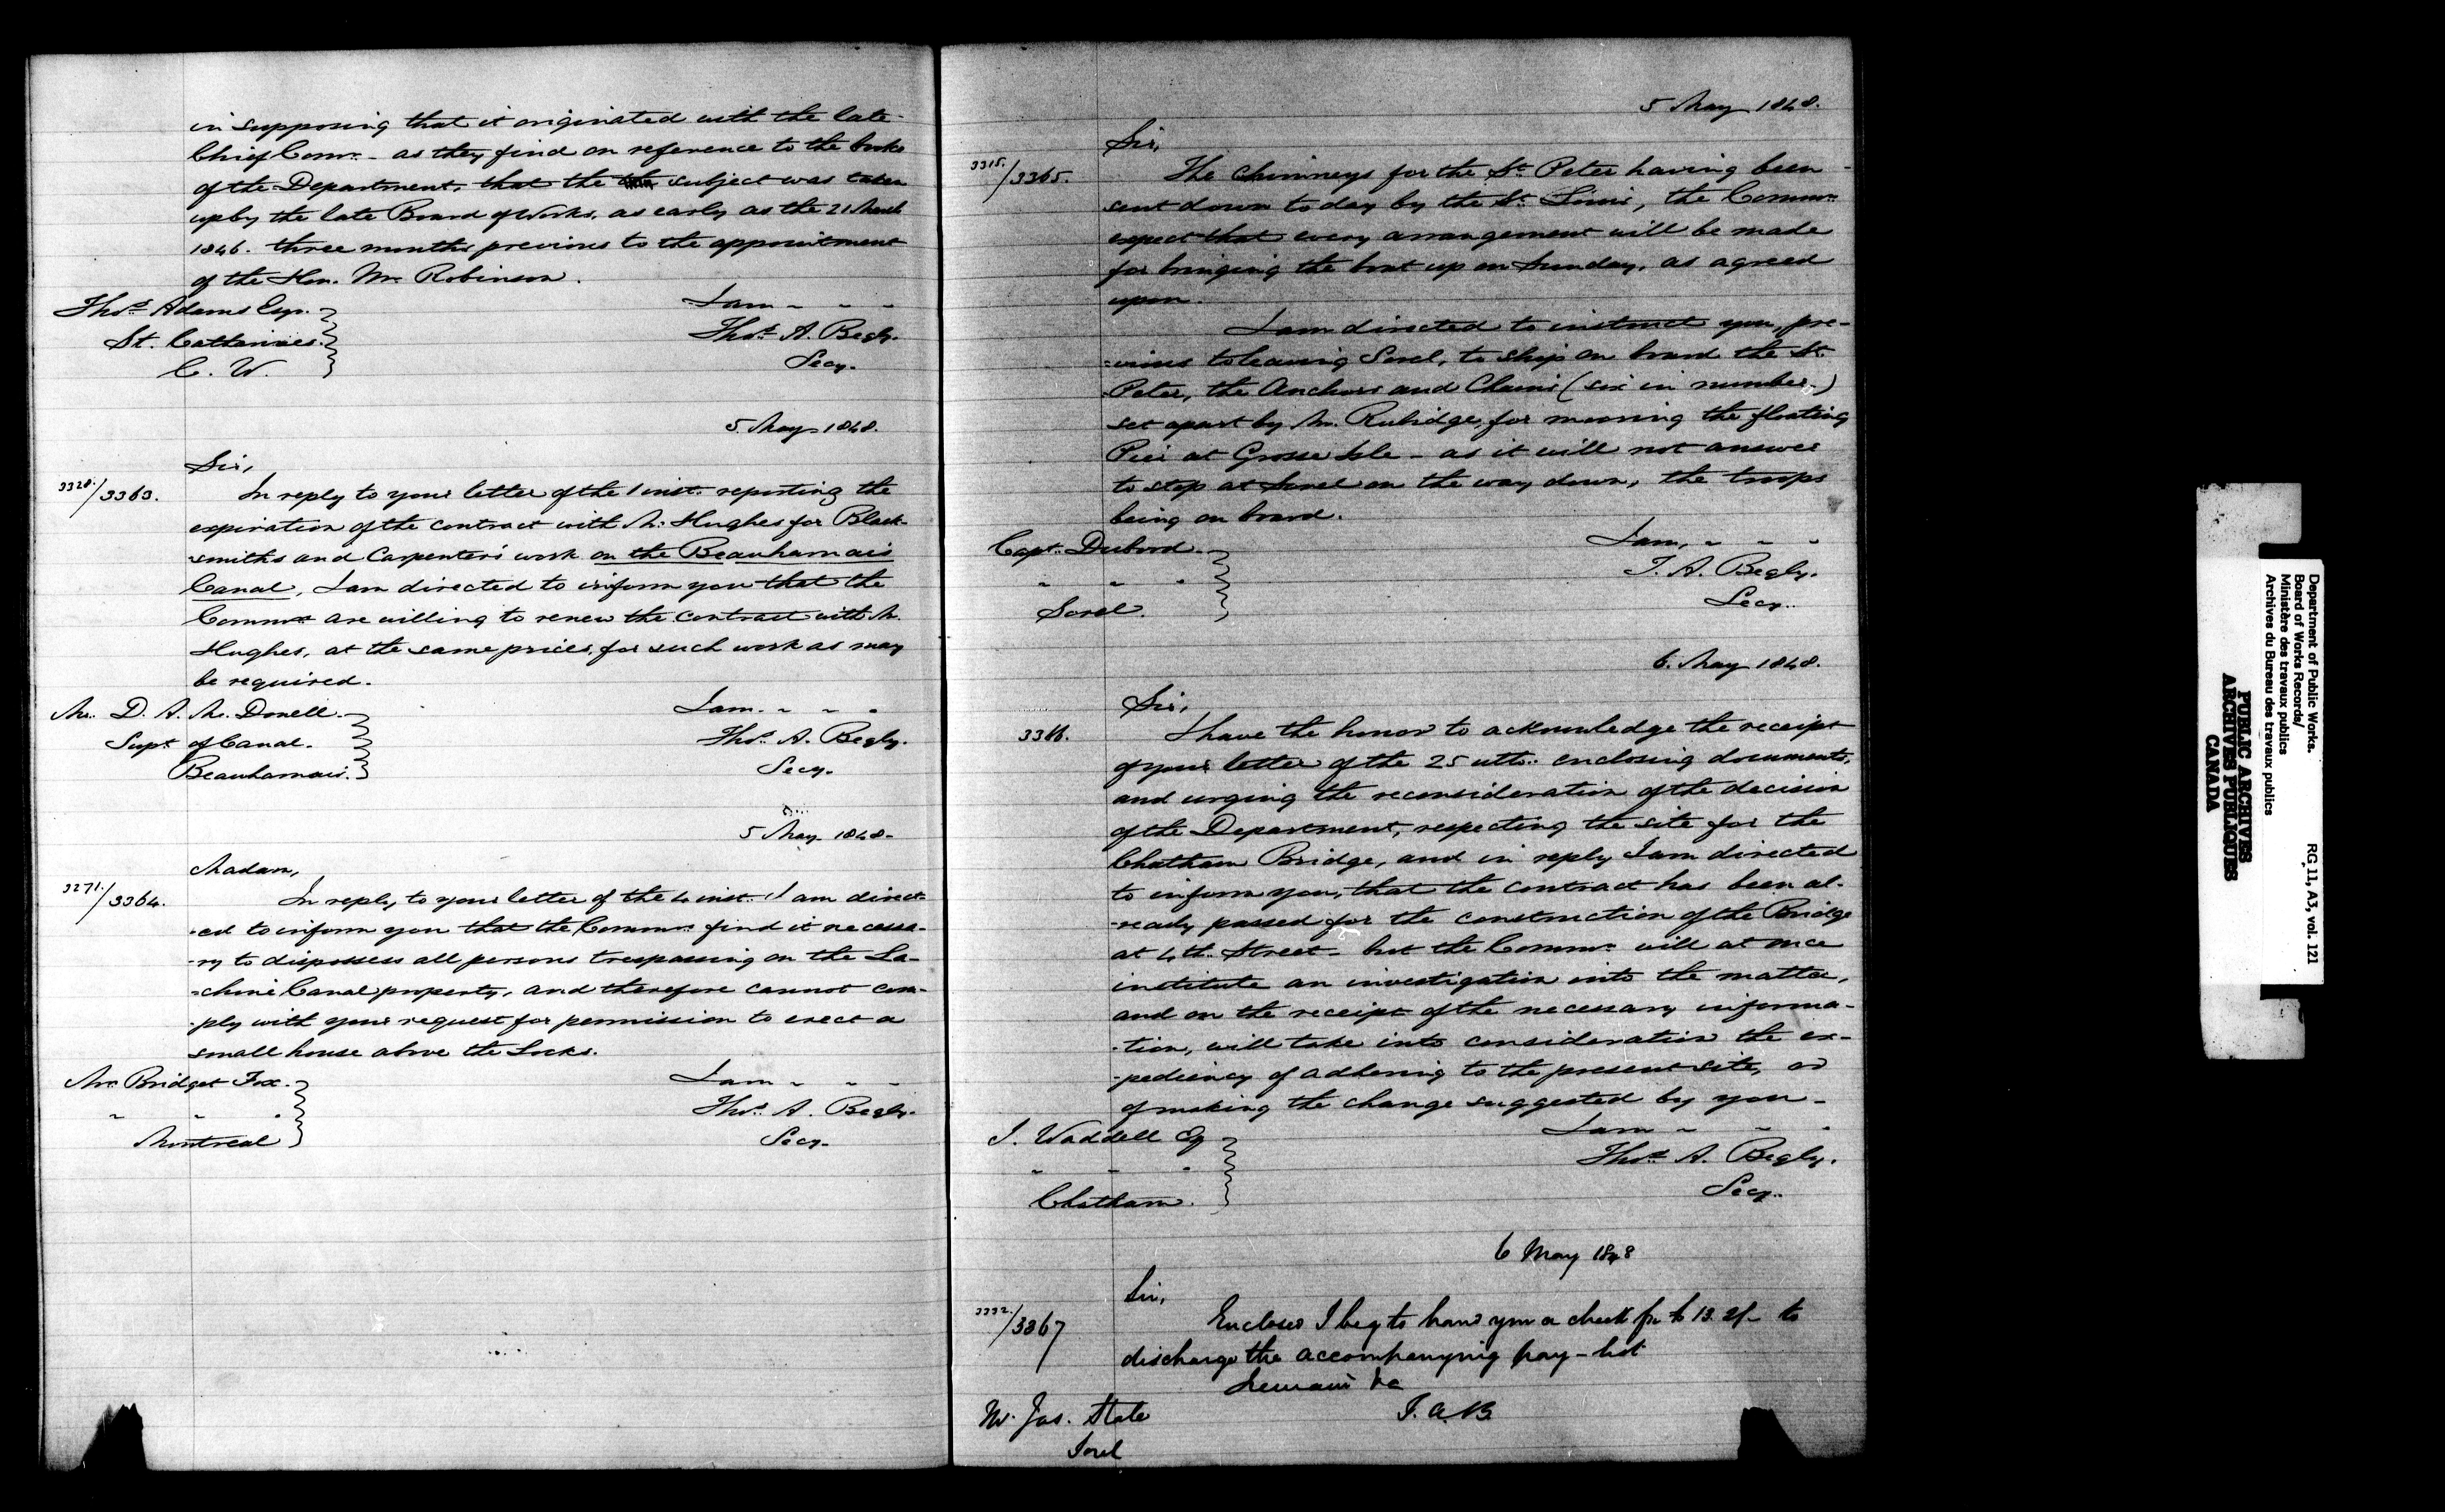 in supposing that it originated with the late
Chief Commr. - as they find on reference to the books
of the Department, that the subject was taken
up by the late Board of Works, as early as the 21 March
1846. three months previous to the appointment
of the Hon. Mr. Robinson.
I am - - -
Thos. Adams Esqr.
Thos. A. Begly.
St. Catharines.
Secy.
C. W.
5 May 1848.
Sir,
3328./3363.
In reply to your letter of the 1 inst. reporting the
expiration of the contract with Mr. Hughes for Black-
-smiths and Carpenter's work on the Beauharnais
Canal, I am directed to inform you that the
Commrs. are willing to renew the contract with Mr.
Hughes, at the same prices, for such work as may
be required.
Mr. D. A. Mc. Donell.
I am. - - -
Supt. of Canal.
Thos. A. Begly.
Beauharnais.
Secy.
5 May 1848.
Madam,
3271./3364.
In reply to your letter of the 4 inst. I am direct-
-ed to inform you that the Commrs. find it necessa-
-ry to dispossess all persons trespassing on the La-
-chine Canal property, and therefore cannot com-
-ply with your request for permission to erect a
small house above the Locks.
Mrs. Bridget Fox.
I am - - -
" " "
Thos. A. Begly.
Montreal
Secy.
5 May 1848.
Sir,
3315./3365.
The Chimneys for the St. Peter having been
sent down today by the St. Louis, the Commrs.
expect that every arrangement will be made
for bringing the boat up on Sunday, as agreed
upon.
I am directed to instruct you, pre-
-vious to leaving Sorel, to ship on board the St.
Peter, the Anchors and Chains (six in number,)
set apart by Mr. Rubidge, for mooring the floating
Pier at Grosse Isle - as it will not answer
to stop at Sorel on the way down, the troops
being on board.
Capt. Dubord.
I am, - - -
" " "
T. A. Begly.
Sorel.
Secy.
6. May 1848.
Sir,
3366.
I have the honor to acknowledge the receipt
of your letter of the 25 ulto. enclosing documents,
and urging the reconsideration of the decision
of the Department, respecting the site for the
Chatham Bridge, and in reply I am directed
to inform you, that the contract has been al-
-ready passed for the construction of the Bridge
at 4th. Street - but the Commrs. will at once
institute an investigation into the matter,
and on the receipt of the necessary informa-
-tion, will take into consideration the ex-
-pediency of adhering to the present site, or
of making the change suggested by you -
J. Waddell Esq
I am - - -
" " "
Thos. A. Begly.
Chatham.
Secy.
6 May 1848
Sir,
3332./3367
Enclosed I beg to hand you a check for £13. 2/- to
discharge the accompanying pay-list
I remain &c
Mr. Jas. State
T. A. B.
Sorel
Department of Public Works.
Board of Works Records/
Ministère des travaux publics
Archives du Bureau des travaux publics
RG 11, A3, vol. 121
PUBLIC ARCHIVES
ARCHIVES PUBLIQUES
CANADA